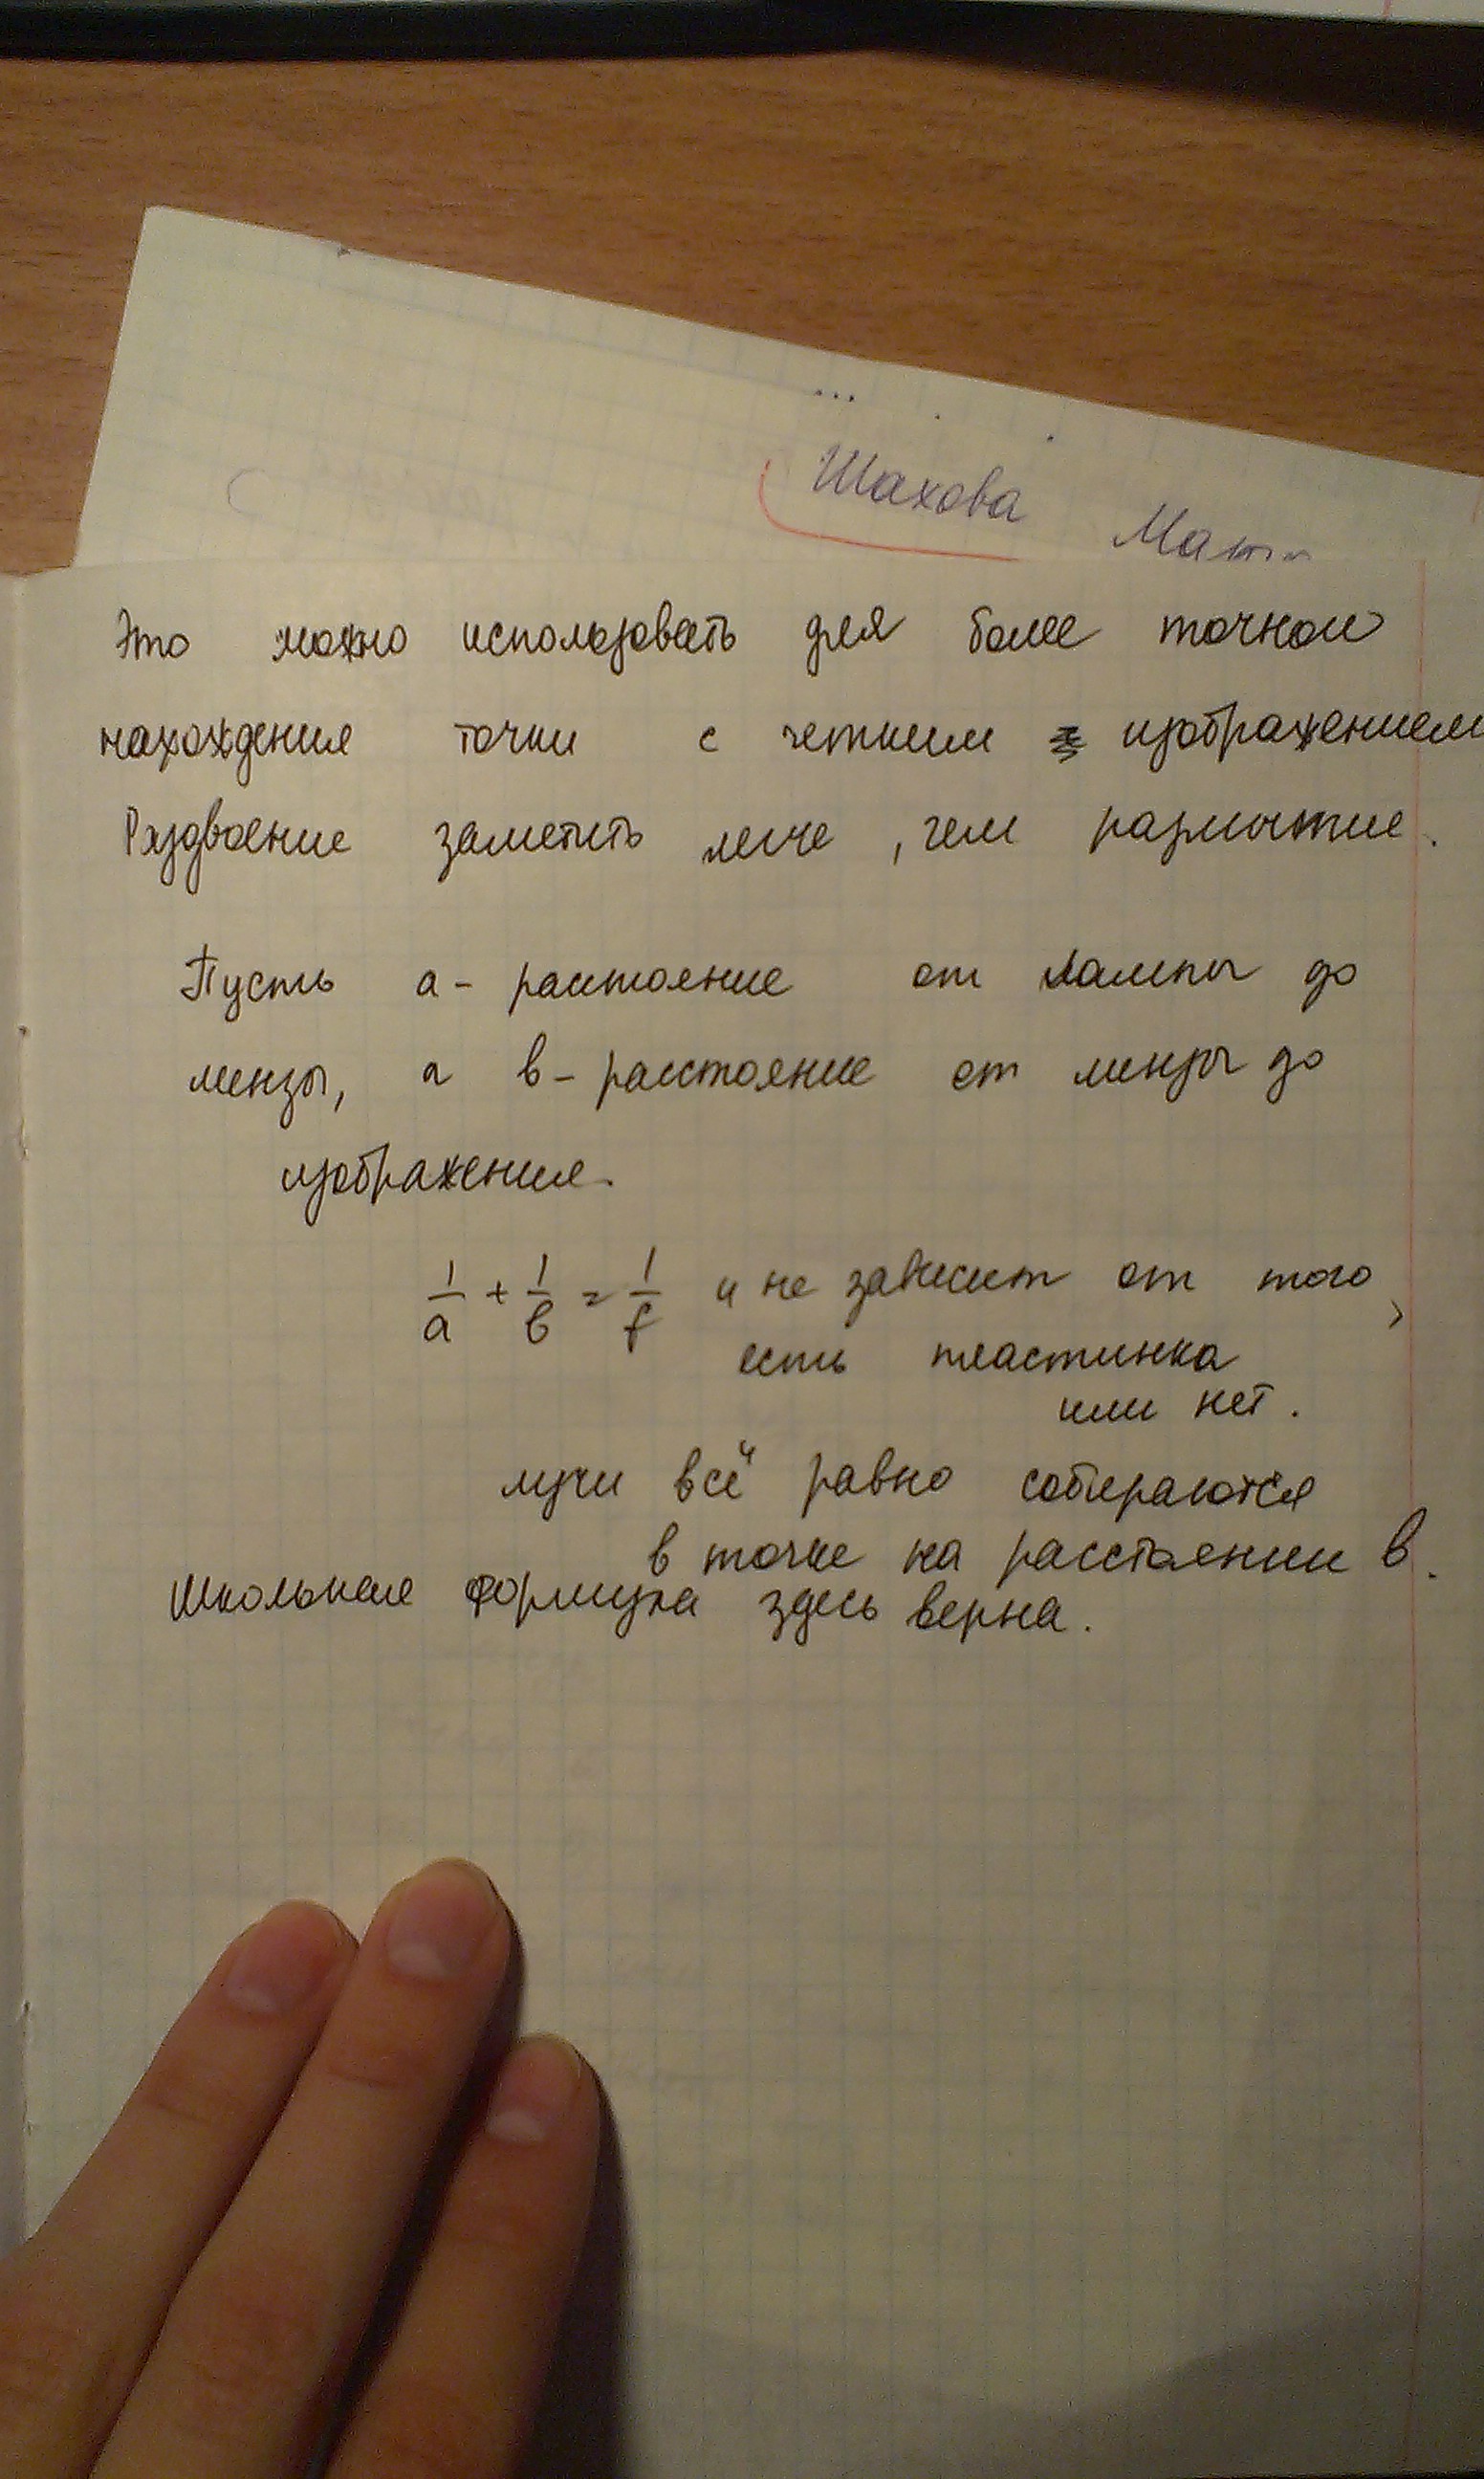 Шахова
Это можно использовать для более точной
нахождения точки с четким изображением
Раздвоение заметить легче, чем размытие.
Пусть а - расстояние от лампы до
линзы, а в - расстояние от линзы до
изображения.
1/a + 1/в = 1/f и не зависит от того,
есть пластинка
или нет.
лучи всё равно собираются
в точке на расстоянии в.
Школьная формула здесь верна.